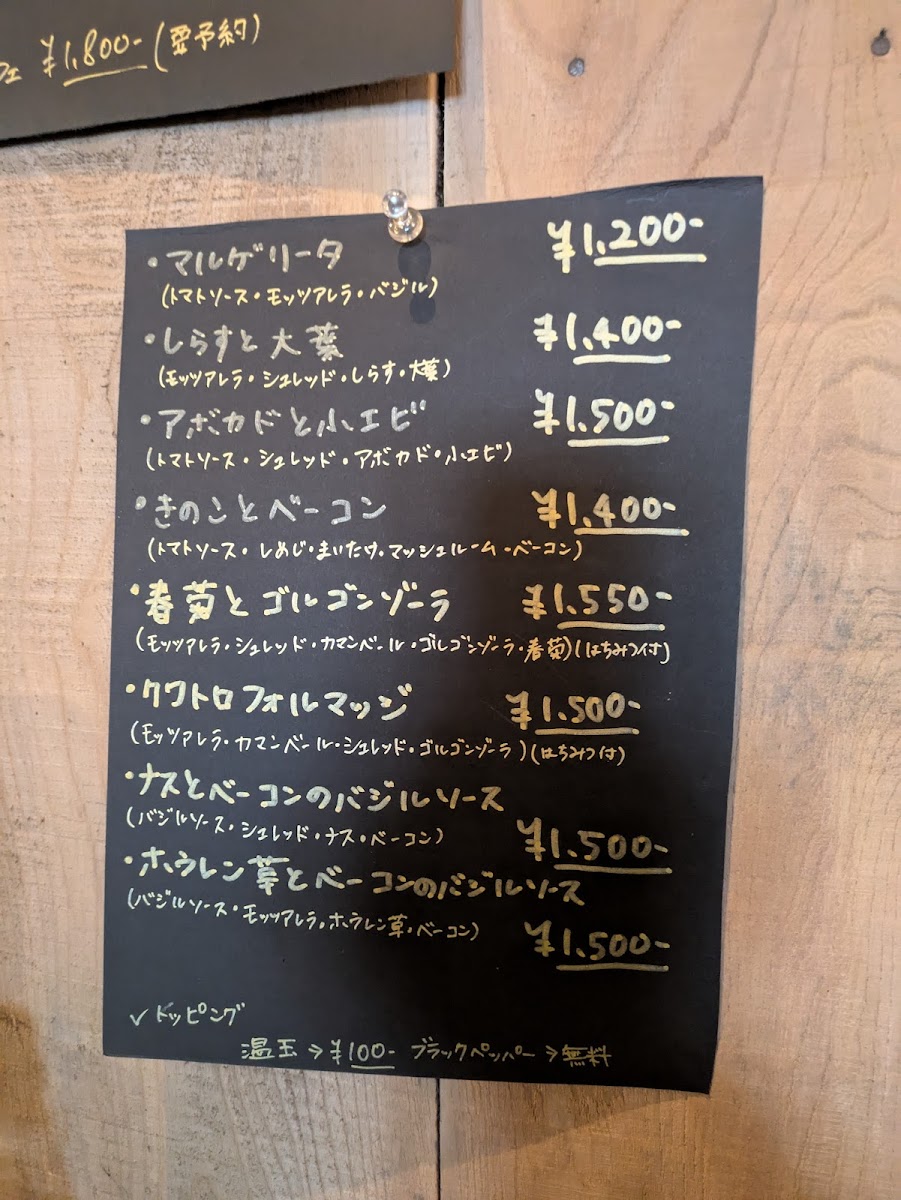 フェ ¥1,800-(要予約)
・マルゲリータ ¥1,200-
(トマトソース・モッツアレラ・バジル)
・しらすと大葉 ¥1,400-
(モッツアレラ・シュレッド・しらす・大葉)
・アボカドと小エビ ¥1,500-
(トマトソース・シュレッド・アボカド・小エビ)
・きのことベーコン ¥1,400-
(トマトソース・しめじ・まいたけ・マッシュルーム・ベーコン)
・春菊とゴルゴンゾーラ ¥1,550-
(モッツアレラ・シュレッド・カマンベール・ゴルゴンゾーラ・春菊)(はちみつ付)
・クワトロフォルマッジ ¥1,500-
(モッツアレラ・カマンベール・シュレッド・ゴルゴンゾーラ)(はちみつ付)
・ナスとベーコンのバジルソース
(バジルソース・シュレッド・ナス・ベーコン) ¥1,500-
・ホウレン草とベーコンのバジルソース
(バジルソース・モッツアレラ・ホウレン草・ベーコン) ¥1,500-
✓トッピング
温玉→¥100- ブラックペッパー→無料